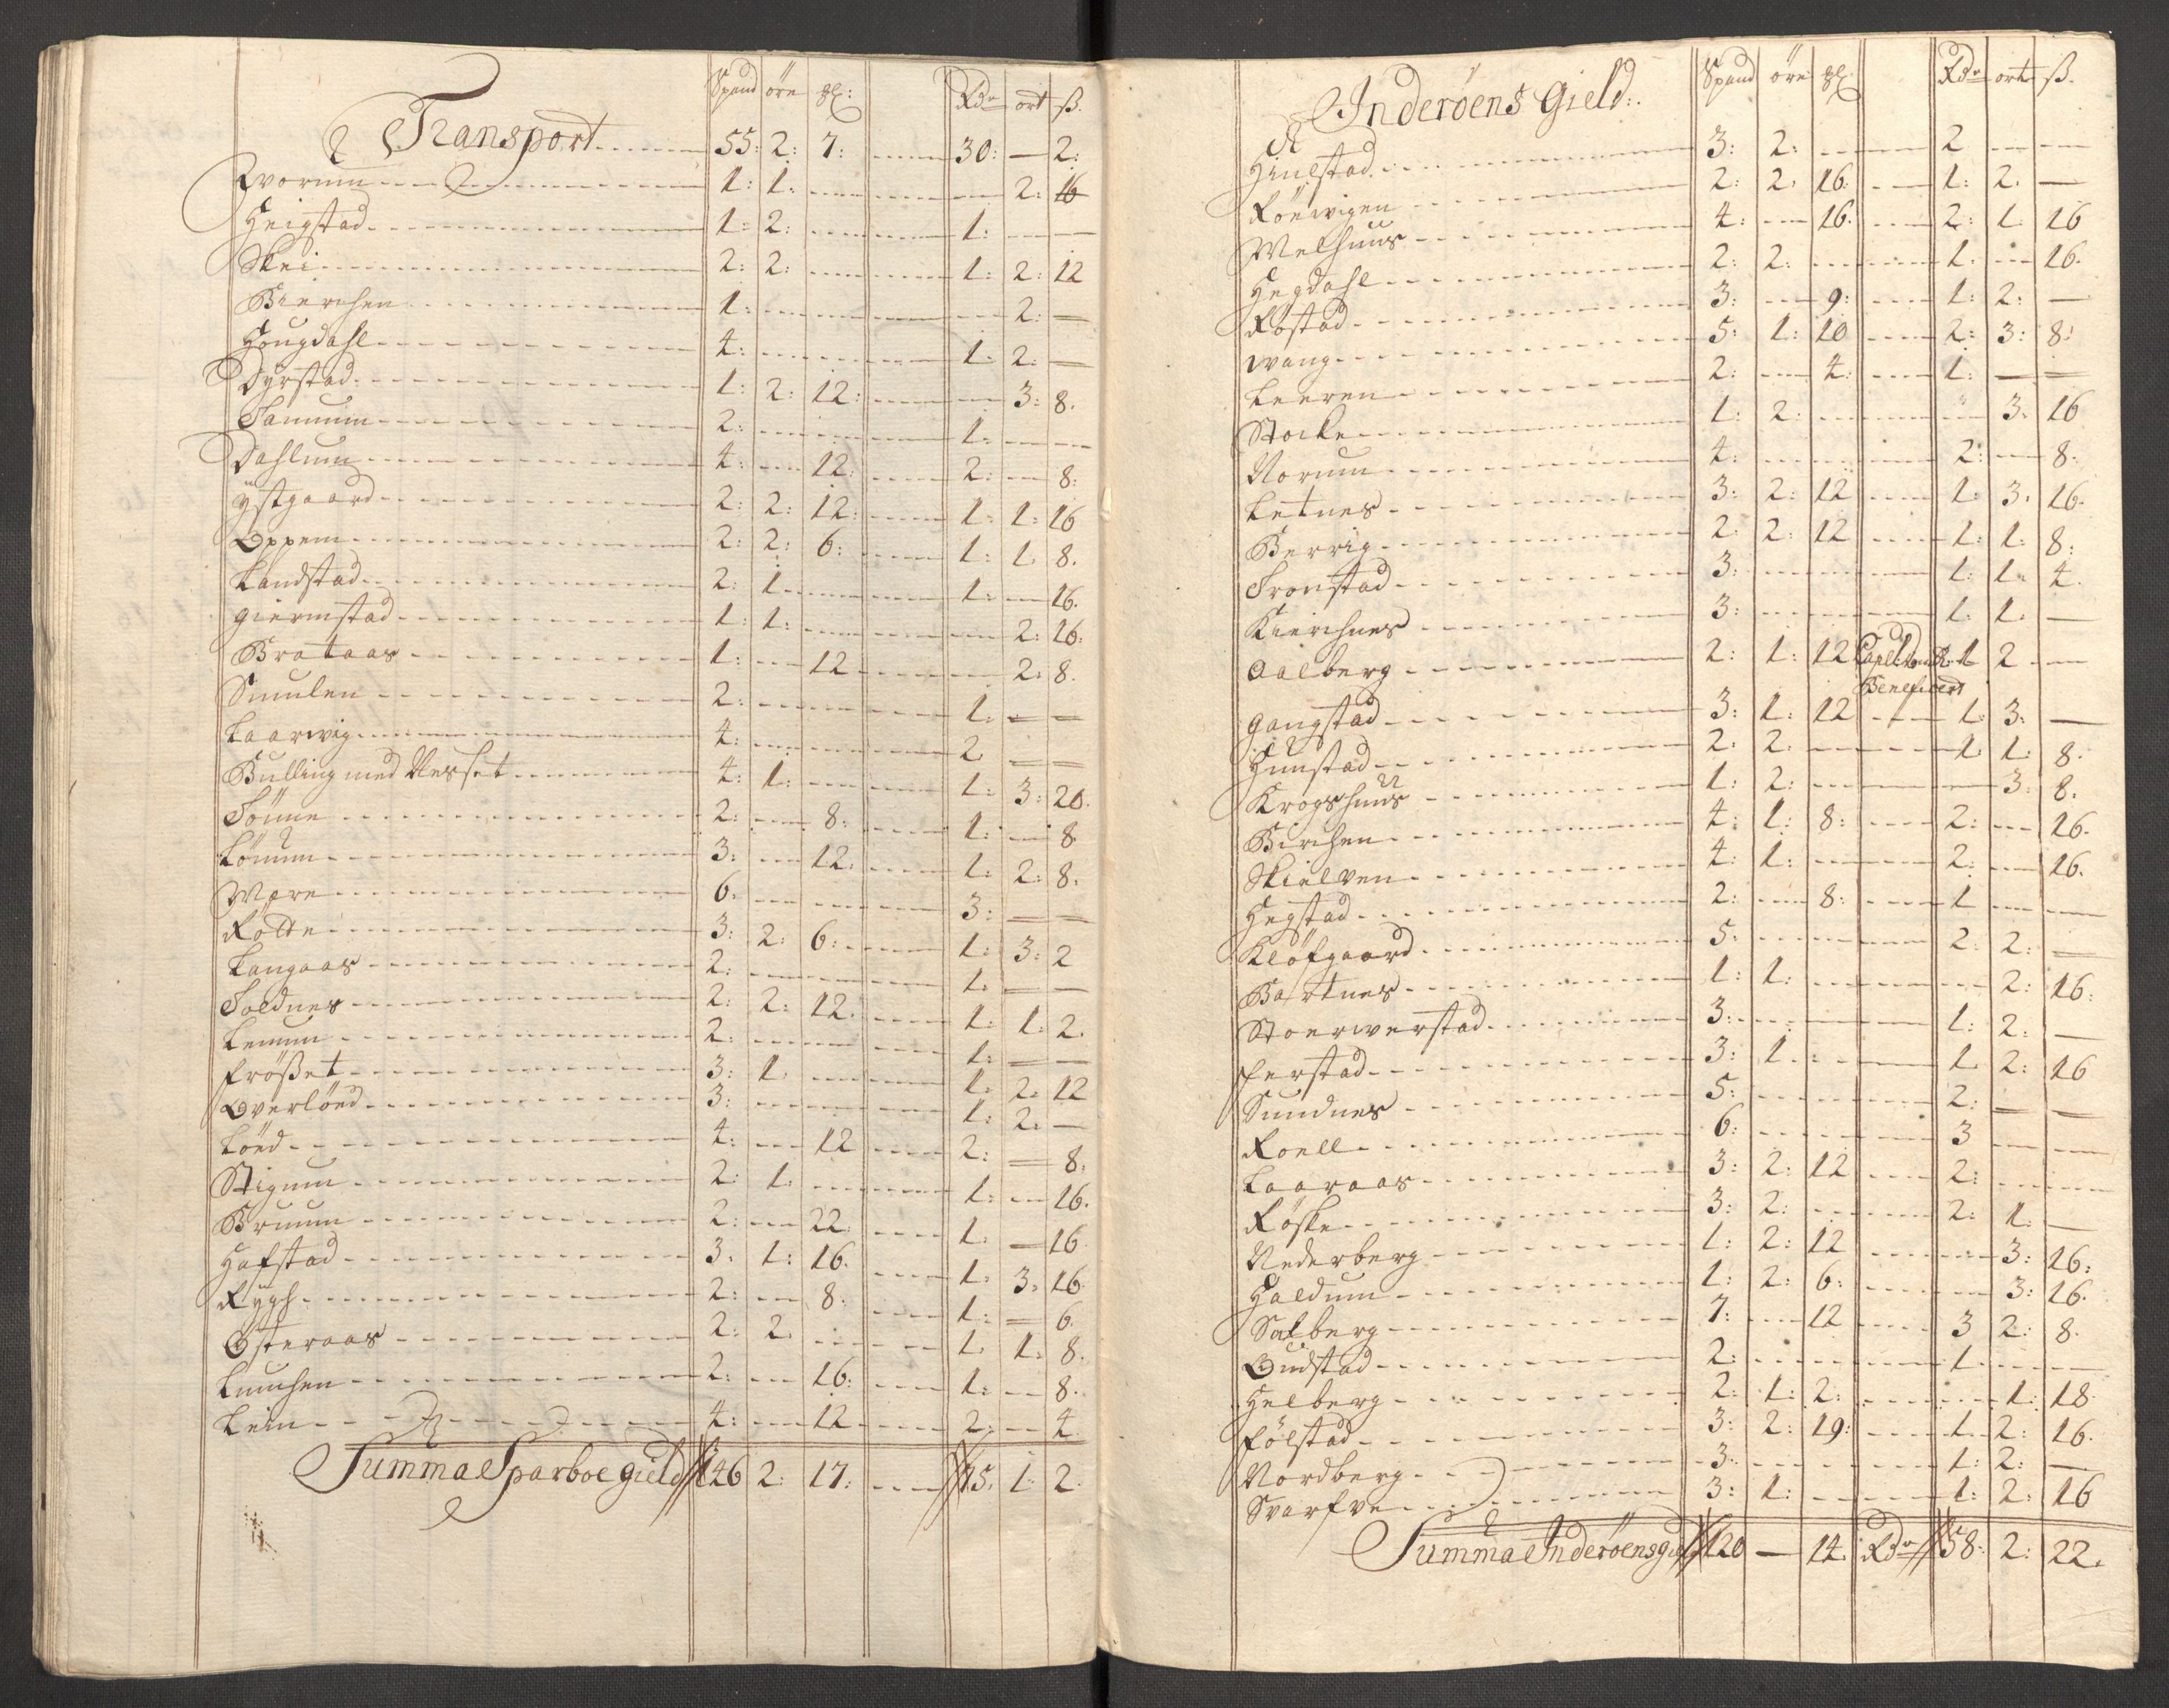 Spand öre gl: Rdr ort ß.
Transport 55: 2: 7: 30: — 2:
Qvorum 1: 1: 2: 16
Heigstad 1: 2: 1:
Skei 2: 2: 1: 2: 12
Bierchen 1: 2: —
Hougdahl 4: 1: 2: —
Dyrstad 1: 2: 12: 3: 8.
Sammum 2: 1:
Dahlum 4: 12: 2: 8:
ystgaard 2: 2: 12: 1: 1: 16
Oppem 2: 2: 6: 1: 1. 8.
Landstad 2: 1 1: 16.
giermstad 1: 1: 2: 16:
Brataas 1: 12 2: 8.
Smulen 2: 1: — —
Laarwig 4: 2 — —
Bulling med Nesset 4: 1: 1: 3: 20.
Sönne 2: 8: 1: 8
Lönum 3: 12: 1: 2: 8.
Mære 6. 3: — —
Rolde 3: 2: 6: 1: 3: 2
Langaas 2: 1. — —
Soldnes 2: 2: 12. 1: 1: 2.
Lemum 2: 1: — —
Frößet 3: 1. 1. 2. 12
Overlöed 3: 1: 2. —
Löed 4: 12 2: — 8:
Stigum 2: 1. 1: 16.
Bruum 2: 22: 1. — 16
Hafstad 3. 1: 16. 1: 3. 16
Rygh 2: 8. 1: — 6.
Österaas 2: 2. 1. 1: 8.
Lunchen 2: 16: 1: 8.
Lein 4: 12 2: 4
Summa Sparboe gield 146 2: 17: 75. 1: 2.
Spand öre gl Rdr ort ß.
Inderöens Gield:
Hiulstad 3: 2: 2
Röewigen 2: 2. 16: 1: 2. —
Welhuus 4: 16. 2: 1 16
Hegdahl 2: 2: 1. 16.
Röstad 3: 9: 1: 2: —
wang 5: 1: 10 2: 3: 8:
Leeren 2: 4: 1: — —
Stocke 1: 2: 3. 16
Norum 4: 2: 8.
Letnes 3: 2: 12 1: 3. 16.
Berrig 2: 2: 12 1: 1: 8:
Fronstad 3: 1: 1. 4.
Kierchnes 3: 1: 1. —
Aalberg 2: 1: 12 1 2
Beneficert
gangstad 3: 1: 12 1: 3: —
Hunstad 2: 2: 1 1: 8.
Krogshuus 1: 2: 3: 8.
Birchen 4: 1: 8: 2: 16.
Skielven 4: 1: 2: 16.
Hegstad 2: 8: 1
Klöfgaard 5. 2: 2: —
Bartnes 1: 1: 2: 16:
Stoerwerstad 3: 1: 2: —
ferstad 3: 1. 1 2: 16
Sundnes 5: 2: — —
Roell 6: 3
Laaraas 3: 2: 12 2:
Röske 3: 2: 2: 1: —
Nederberg 1: 2: 12 3: 16:
Haldum 1: 2: 6: 3: 16.
Salberg 7: 12 3 2: 8.
Gudstad 2: 1.
Helberg 2: 1: 2: 1: 18
fölstad 3: 2: 19: 1. 2: 16.
Nordberg 3. 1: 2: —
Svarfve 3: 1: 1: 2: 16
Summa Inderöens gield 120 — 14. Rdr 58: 2: 22.